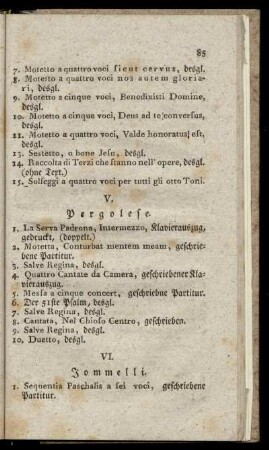 85
7. Motetto a quattro voci sicut cervus, desgl.
8. Motetto a quattro voci nos autem gloria-
ri, desgl.
9. Motetto a cinque voci, Benedixisti Domine,
desgl.
10. Motetto a cinque voci, Deus ad te conversus,
desgl.
11. Motetto a quattro voci, Valde honoratus est,
desgl.
13. Sestetto, o bone Jesu, desgl.
14. Raccolta di Terzi che stanno nell' opere, desgl.
(ohne Text.)
15. Solfeggi a quattro voci per tutti gli otto Toni.
V.
Pergolese.
1. La Serva Padrona, Intermezzo, Klavierauszug,
gedruckt, (doppelt.)
2. Motetta, Conturbat mentem meam, geschrie-
bene Partitur.
3. Salve Regina, desgl.
4. Quattro Cantate da Camera, geschriebener Kla-
vierauszug.
5. Messa a cinque concert, geschriebne Partitur.
6. Der 51ste Psalm, desgl.
7. Salve Regina, desgl.
8. Cantata, Nel Chioso Centro, geschrieben.
9. Salve Regina, desgl.
10. Duetto, desgl.
VI.
Jommelli.
1. Sequentia Paschalis a sei voci, geschriebene
Partitur.